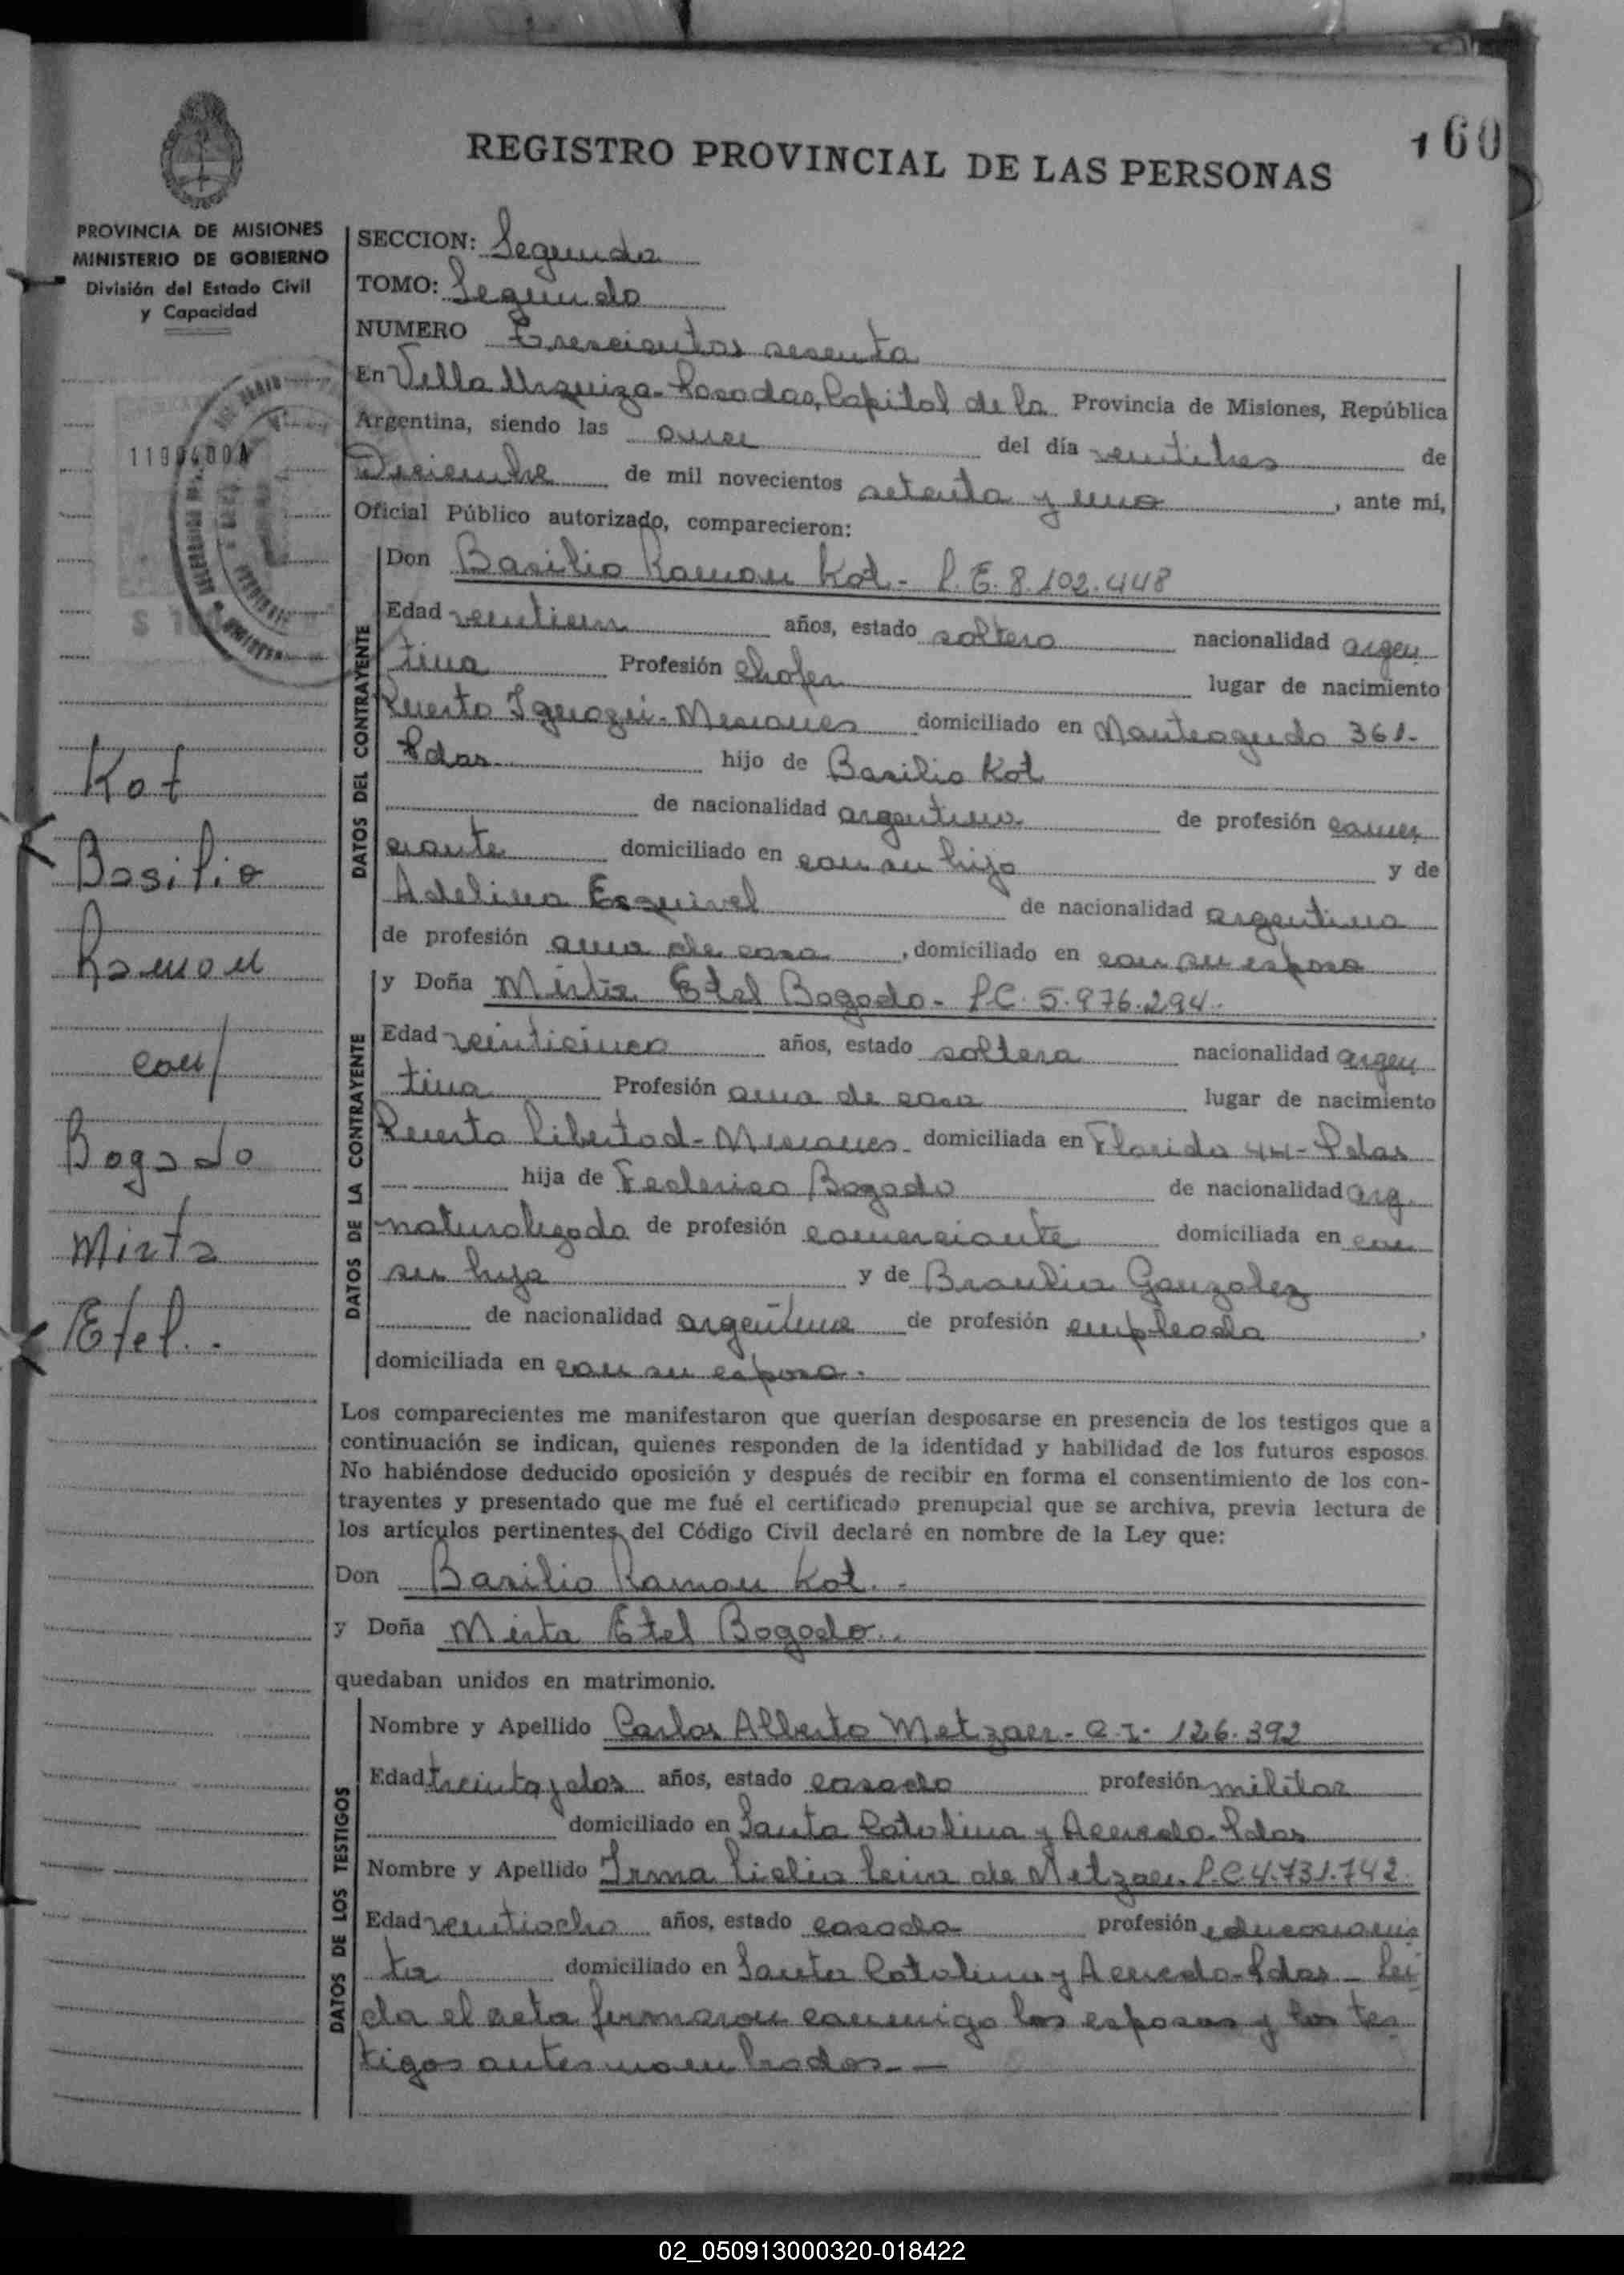 160
REGISTRO PROVINCIAL DE LAS PERSONAS
PROVINCIA DE MISIONES
MINISTERIO DE GOBIERNO
División del Estado Civil
y Capacidad
SECCION: Segunda
TOMO: Segundo
NUMERO Trescientos sesenta
En Villa Urquiza-Posadas, Capital de la Provincia de Misiones, República
Argentina, siendo las once del día veintitres de
Diciembre de mil novecientos setenta y uno, ante mi,
Oficial Público autorizado, comparecieron:
DATOS DEL CONTRAYENTE
Don Basilio Ramon Kot- L.E. 8.102.448
Edad años, estado soltero nacionalidad argen
tina Profesión chofer lugar de nacimiento
Puerto Iguazú-Misiones domiciliado en Monteagudo 361-
Pdas hijo de Basilio Kot
de nacionalidad argentino de profesión comer
ciante domiciliado en con su hijo y de
Adelina Esquivel de nacionalidad argentina
de profesión ama de casa, domiciliado en con su esposo
DATOS DE LA CONTRAYENTE
y Doña Mirta Etel Bogado- L.C. 5.976.294.
Edad veinticinco años, estado soltera nacionalidad argen
tina Profesión ama de casa lugar de nacimiento
Puerto Libertad-Misiones- domiciliada en Florida 44-Pdas
hija de Federico Bogado de nacionalidad arg.
naturalizado de profesión comerciante domiciliada en con
su hija y de Braulia Gonzalez
de nacionalidad argentina de profesión empleada,
domiciliada en con su esposo.
Los comparecientes me manifestaron que querían desposarse en presencia de los testigos que a
continuación se indican, quienes responden de la identidad y habilidad de los futuros esposos.
No habiéndose deducido oposición y después de recibir en forma el consentimiento de los con-
trayentes y presentado que me fué el certificado prenupcial que se archiva, previa lectura de
los artículos pertinentes del Código Civil declaré en nombre de la Ley que:
Don Basilio Ramon Kot.-
y Doña Mirta Etel Bogado..
quedaban unidos en matrimonio.
DATOS DE LOS TESTIGOS
Nombre y Apellido Carlos Alberto Metzger- C.I- 126.392
Edad treinta y dos años, estado casado profesión militar
domiciliado en Santa Catalina y Acevedo-Pdas
Nombre y Apellido Irma Lidia Leiva de Metzger. L.C.4.731.742.
Edad veintiocho años, estado casada profesión educacionis
ta domiciliado en Santa Catalina y Acevedo-Pdas- Lei
da el acta firmaron conmigo los esposos y los tes
tigos antes nombrados.-
Kot
Basilio
Ramon
con/
Bogado
Mirta
Etel.-
02_050913000320-018422